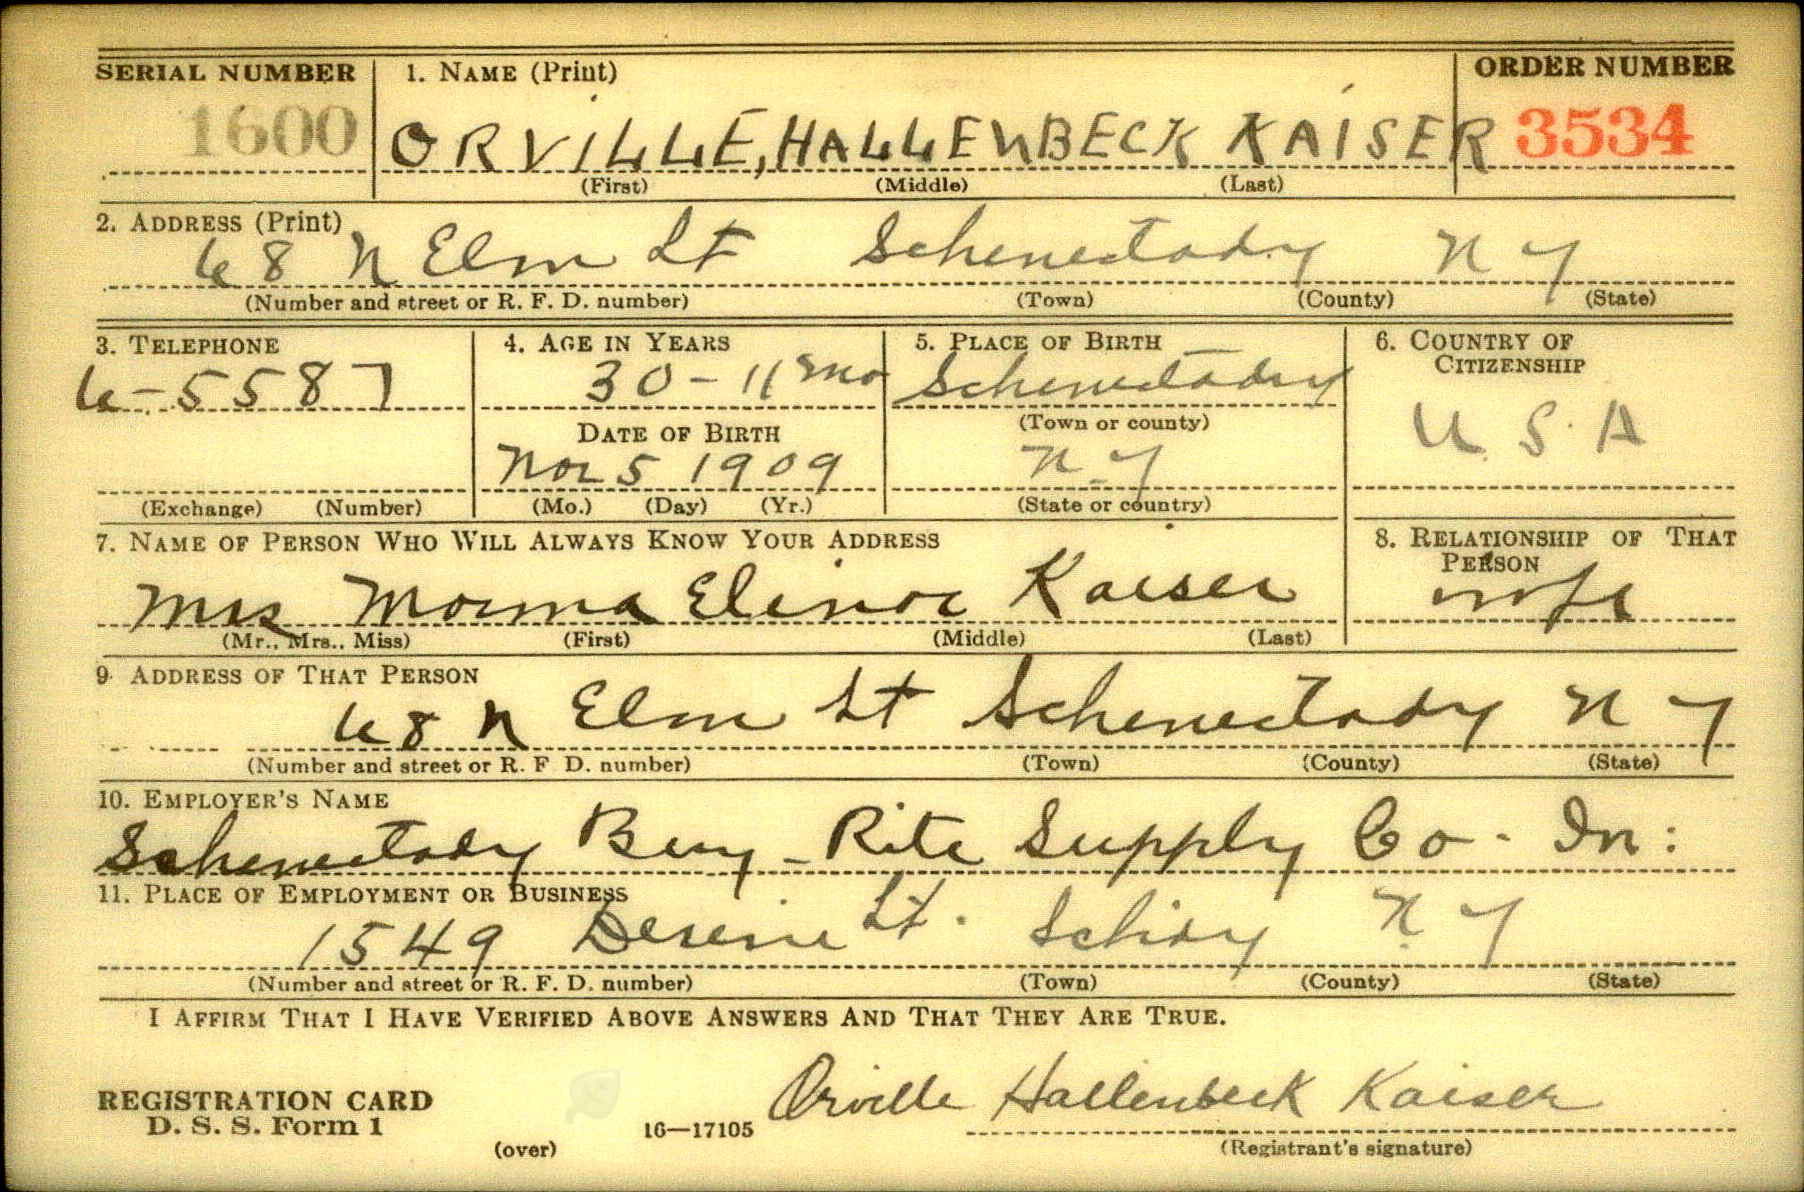 SERIAL NUMBER 1. NAME (Print) ORDER NUMBER
1600 ORVILLE, HALLENBECK KAISER 3534
(First) (Middle) (Last)
2. ADDRESS (Print)
68 N Elm St Schenectady N Y
(Number and street or R. F. D. number) (Town) (County) (State)
3. TELEPHONE 4. AGE IN YEARS 5. PLACE OF BIRTH 6. COUNTRY OF
CITIZENSHIP
6-5587 30-11 mo Schenectady
(Town or county)
U. S. A
DATE OF BIRTH
Nov 5 1909 N-Y
(Exchange) (Number) (Mo.) (Day) (Yr.) (State or country)
7. NAME OF PERSON WHO WILL ALWAYS KNOW YOUR ADDRESS 8. RELATIONSHIP OF THAT
PERSON
Mrs Morma Elinor Kaiser wife
(Mr., Mrs., Miss) (First) (Middle) (Last)
9. ADDRESS OF THAT PERSON
68 N Elm St Schenectady N Y
(Number and street or R. F D. number) (Town) (County) (State)
10. EMPLOYER'S NAME
Schenectady Buy-Rite Supply Co. In:
11. PLACE OF EMPLOYMENT OR BUSINESS
1549 St. Schdy N. Y
(Number and street or R. F. D. number) (Town) (County) (State)
I AFFIRM THAT I HAVE VERIFIED ABOVE ANSWERS AND THAT THEY ARE TRUE.
Orville Hallenbeck Kaiser
REGISTRATION CARD
D. S. S. Form 1
(over) 16—17105 (Registrant's signature)